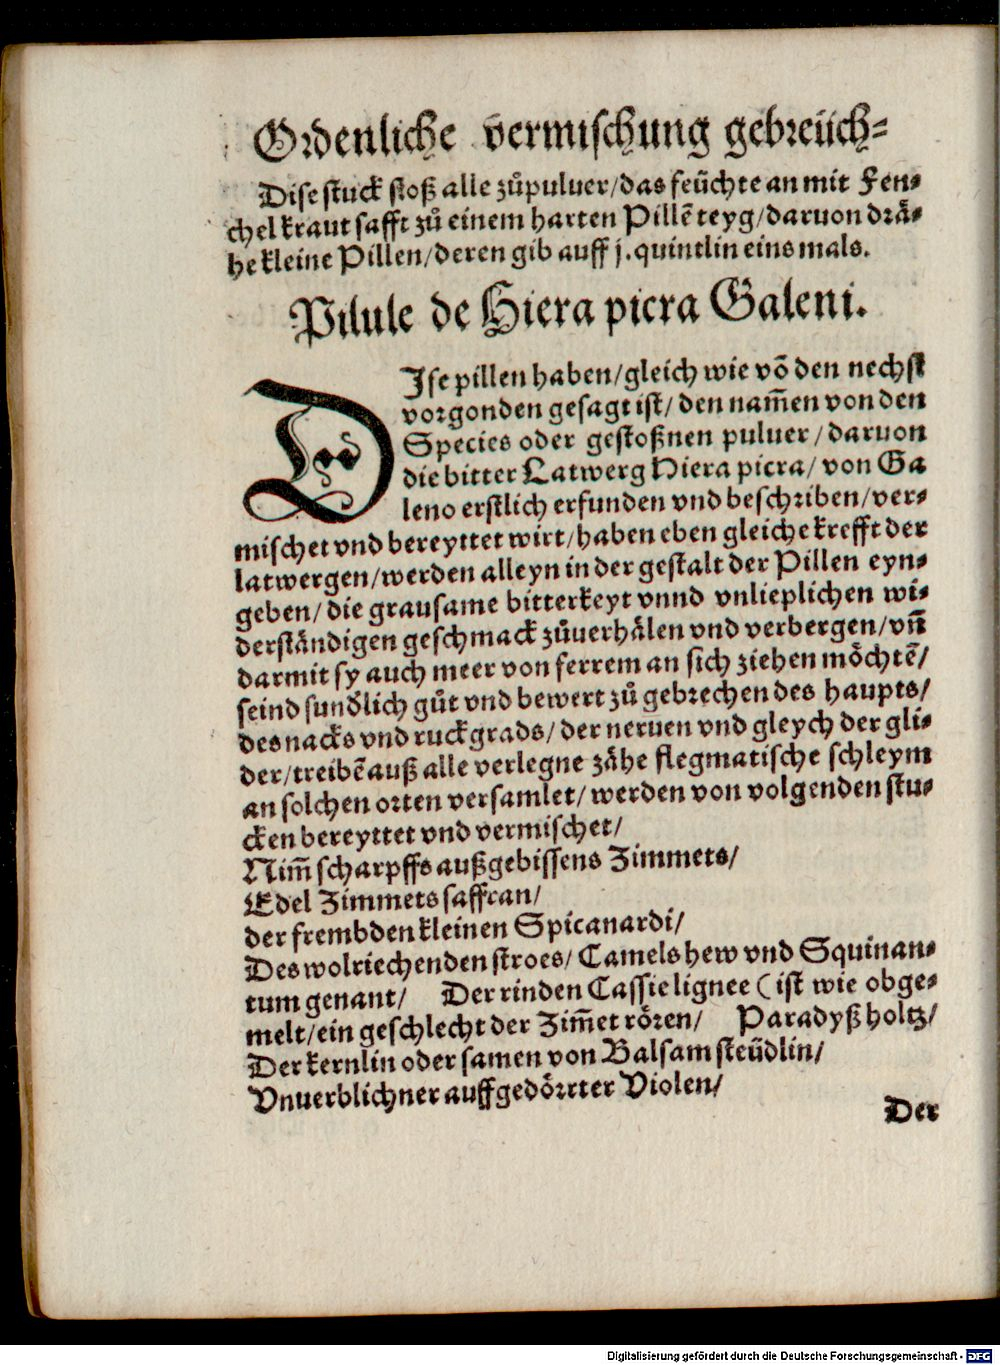 Ordenliche vermischung gebreüch-
Dise stuck stoß alle zůpuluer/das feüchte an mit Fen-
chelkraut safft zů einem harten Pillẽ teyg/daruon drä-
he kleine Pillen/deren gib auff j.quintlin eins mals.
Pilule de Hiera picra Galeni.
DIse pillen haben/gleich wie võ den nechst
vorgonden gesagt ist/ den nam̃en von den
Species oder gestoßnen puluer/daruon
die bitter Latwerg Hiera picra/ von Ga
leno erstlich erfunden vnd beschriben/ver-
mischet vnd bereyttet wirt/haben eben gleiche krefft der
latwergen/werden alleyn in der gestalt der Pillen eyn-
geben/ die grausame bitterkeyt vnnd vnlieplichen wi-
derständigen geschmack zůuerhälen vnd verbergen/vñ
darmit sy auch meer von ferrem an sich ziehen möchtẽ/
seind sundlich gůt vnd bewert zů gebrechen des haupts/
des nacks vnd ruckgrads/ der neruen vnd gleych der gli-
der/treibẽ auß alle verlegne zähe flegmatische schleym
an solchen orten versamlet/ werden von volgenden stu-
cken bereyttet vnd vermischet/
Nim̃ scharpffs außgebissens Zimmets/
Edel Zimmets saffran/
der frembden kleinen Spicanardi/
Des wolriechenden stroes/ Camels hew vnd Squinan-
tum genant/ Der rinden Cassie lignee (ist wie obge-
melt/ein geschlecht der Zim̃et rören/ Paradyß holtz/
Der kernlin oder samen von Balsam steüdlin/
Vnuerblichner auffgedörrter Violen/
Der
Digitalisierung gefördert durch die Deutsche Forschungsgemeinschaft - DFG